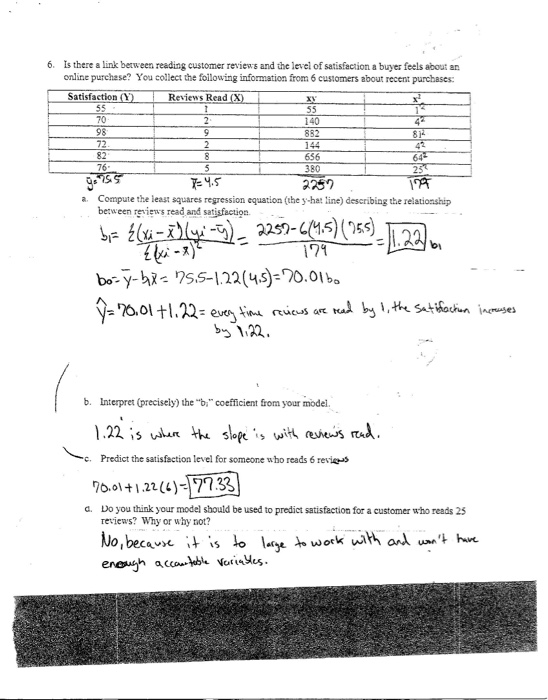 6. Is there a link between reading customer reviews and the level of satisfaction a buyer feels about an
online purchase? You collect the following information from 6 customers about recent purchases:
Satisfaction (Y) Reviews Read (X) xy x²
55 1 55 1²
70 2 140 4²
98 9 882 81²
72 2 144 4²
82 8 656 64²
76 5 380 25²
ȳ=75.5 x̄=4.5 2257 179
a. Compute the least squares regression equation (the y-hat line) describing the relationship
between reviews read and satisfaction.
b₁= Σ(xi-x̄)(yi-ȳ) / Σ(xi-x̄)² = 2257-6(4.5)(75.5) / 179 = 1.22 b₁
b₀=ȳ-b₁x̄ = 75.5-1.22(4.5)=70.01 b₀
ŷ=70.01+1.22= every time reviews are read by 1, the satisfaction increases
by 1.22.
b. Interpret (precisely) the "b₁" coefficient from your model.
1.22 is where the slope is with reviews read.
c. Predict the satisfaction level for someone who reads 6 reviews
70.01+1.22(6)=77.33
d. Do you think your model should be used to predict satisfaction for a customer who reads 25
reviews? Why or why not?
No, because it is to large to work with and won't have
enough accountable variables.